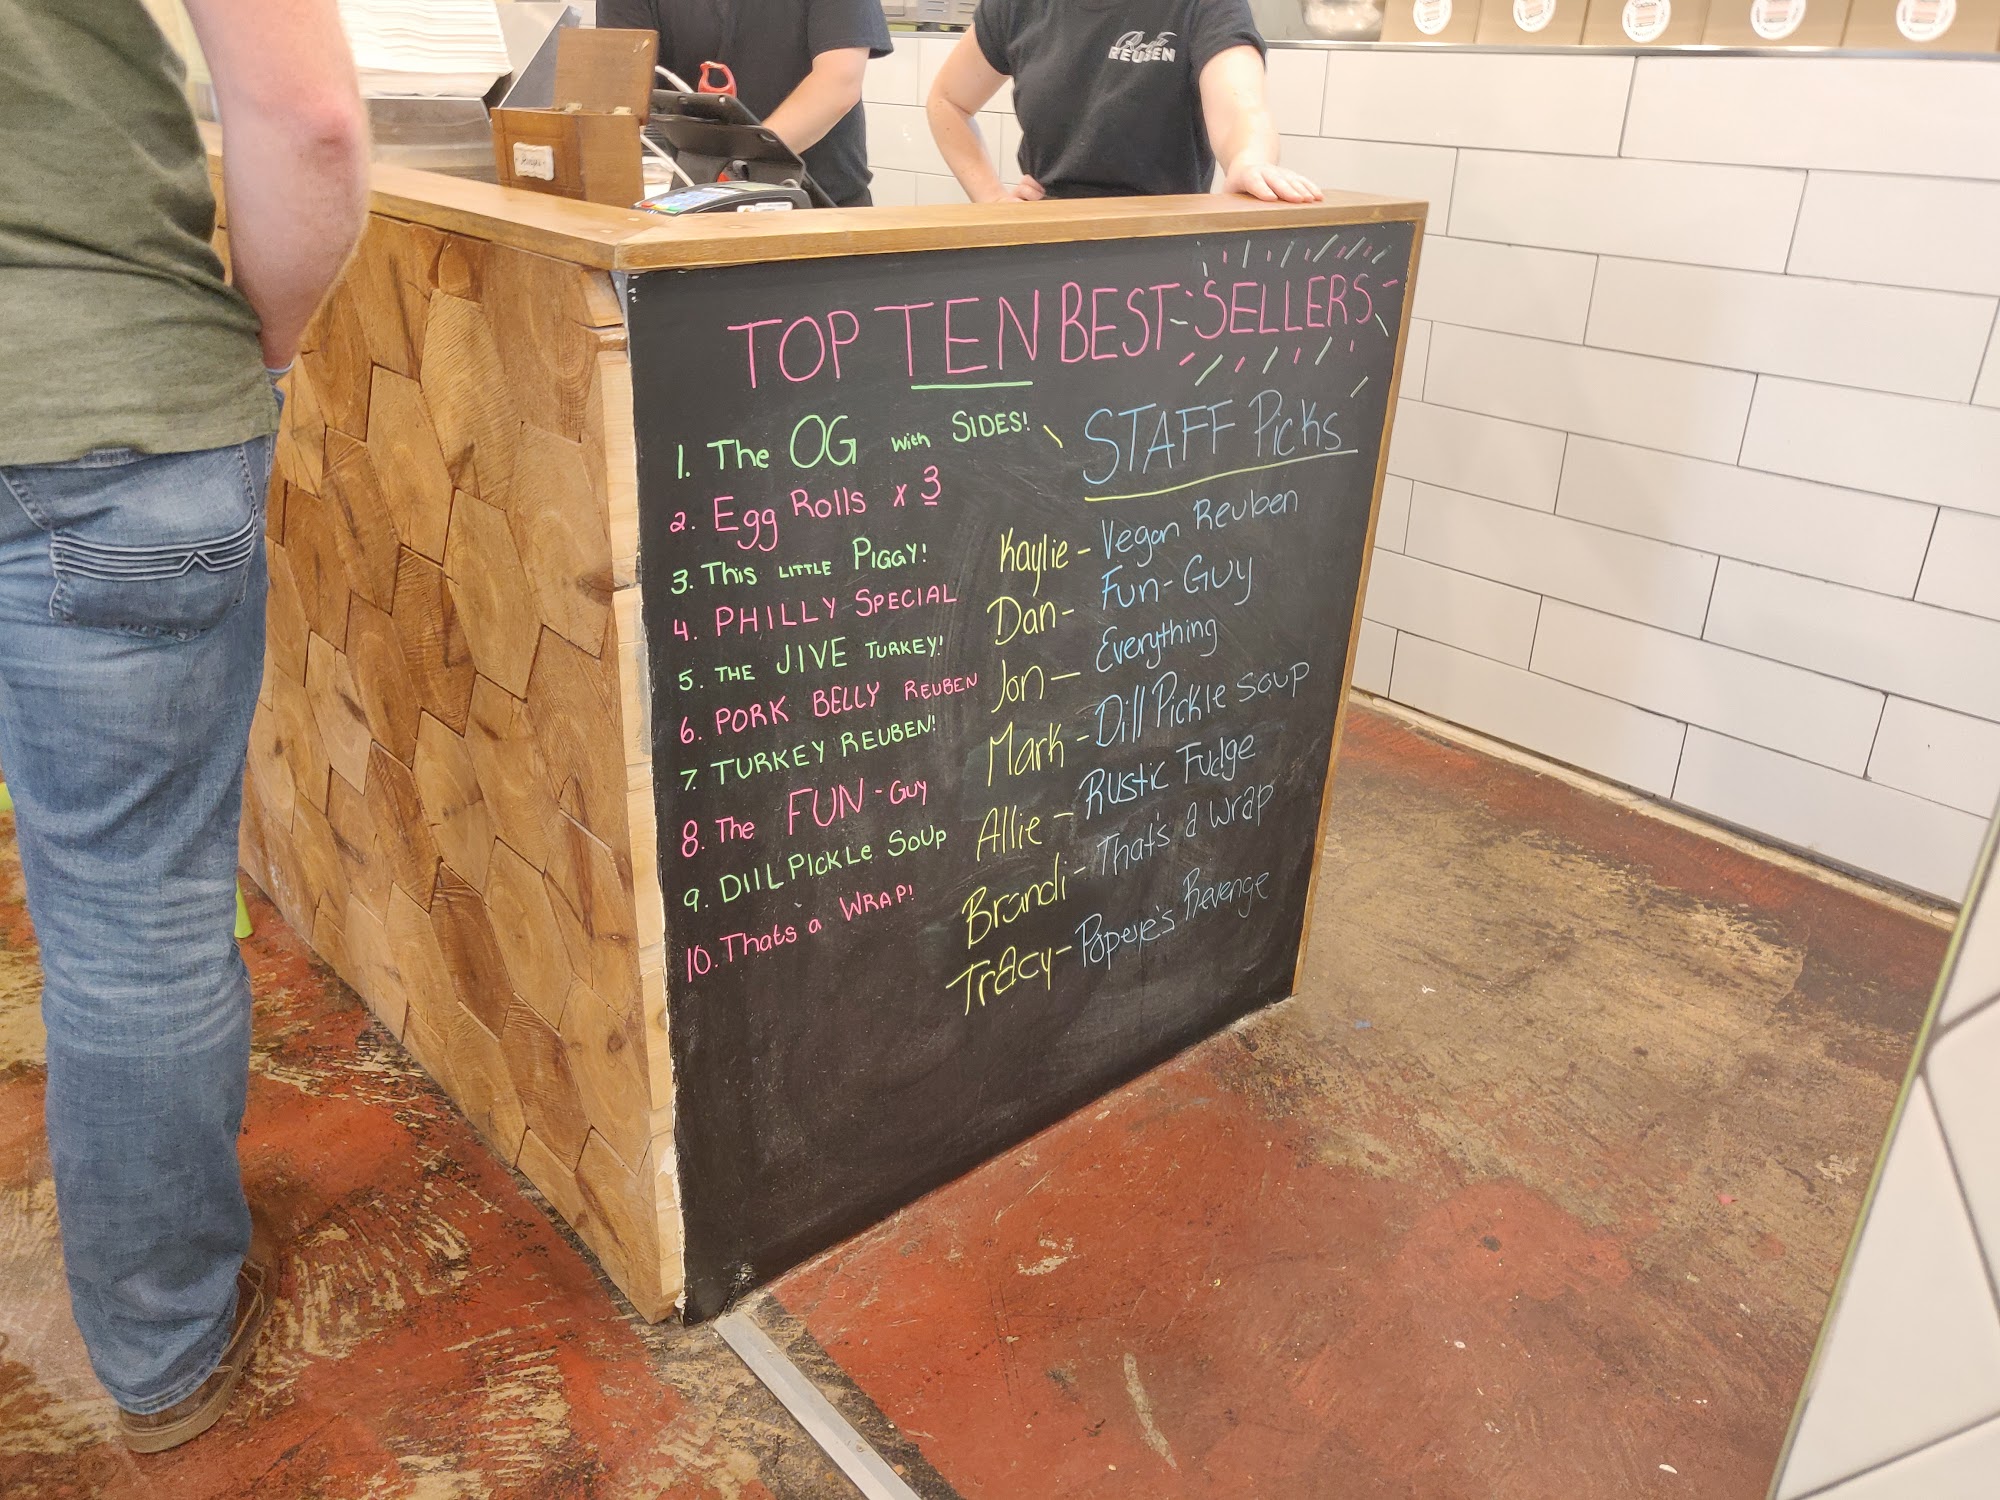 REUBEN
TOP TEN BEST SELLERS
1. The OG with SIDES!
2. Egg Rolls x 3
3. This LITTLE PIGGY!
4. PHILLY SPECIAL
5. THE JIVE TURKEY!
6. PORK BELLY REUBEN
7. TURKEY REUBEN!
8. The FUN-GUY
9. DIIL PICKLE SOUP
10. Thats a WRAP!
STAFF Picks
Kaylie - Vegan Reuben
Dan - Fun-Guy
Jon - Everything
Mark - Dill Pickle Soup
Allie - Rustic Fudge
Brandi - That's a Wrap
Tracy - Popeye's Revenge